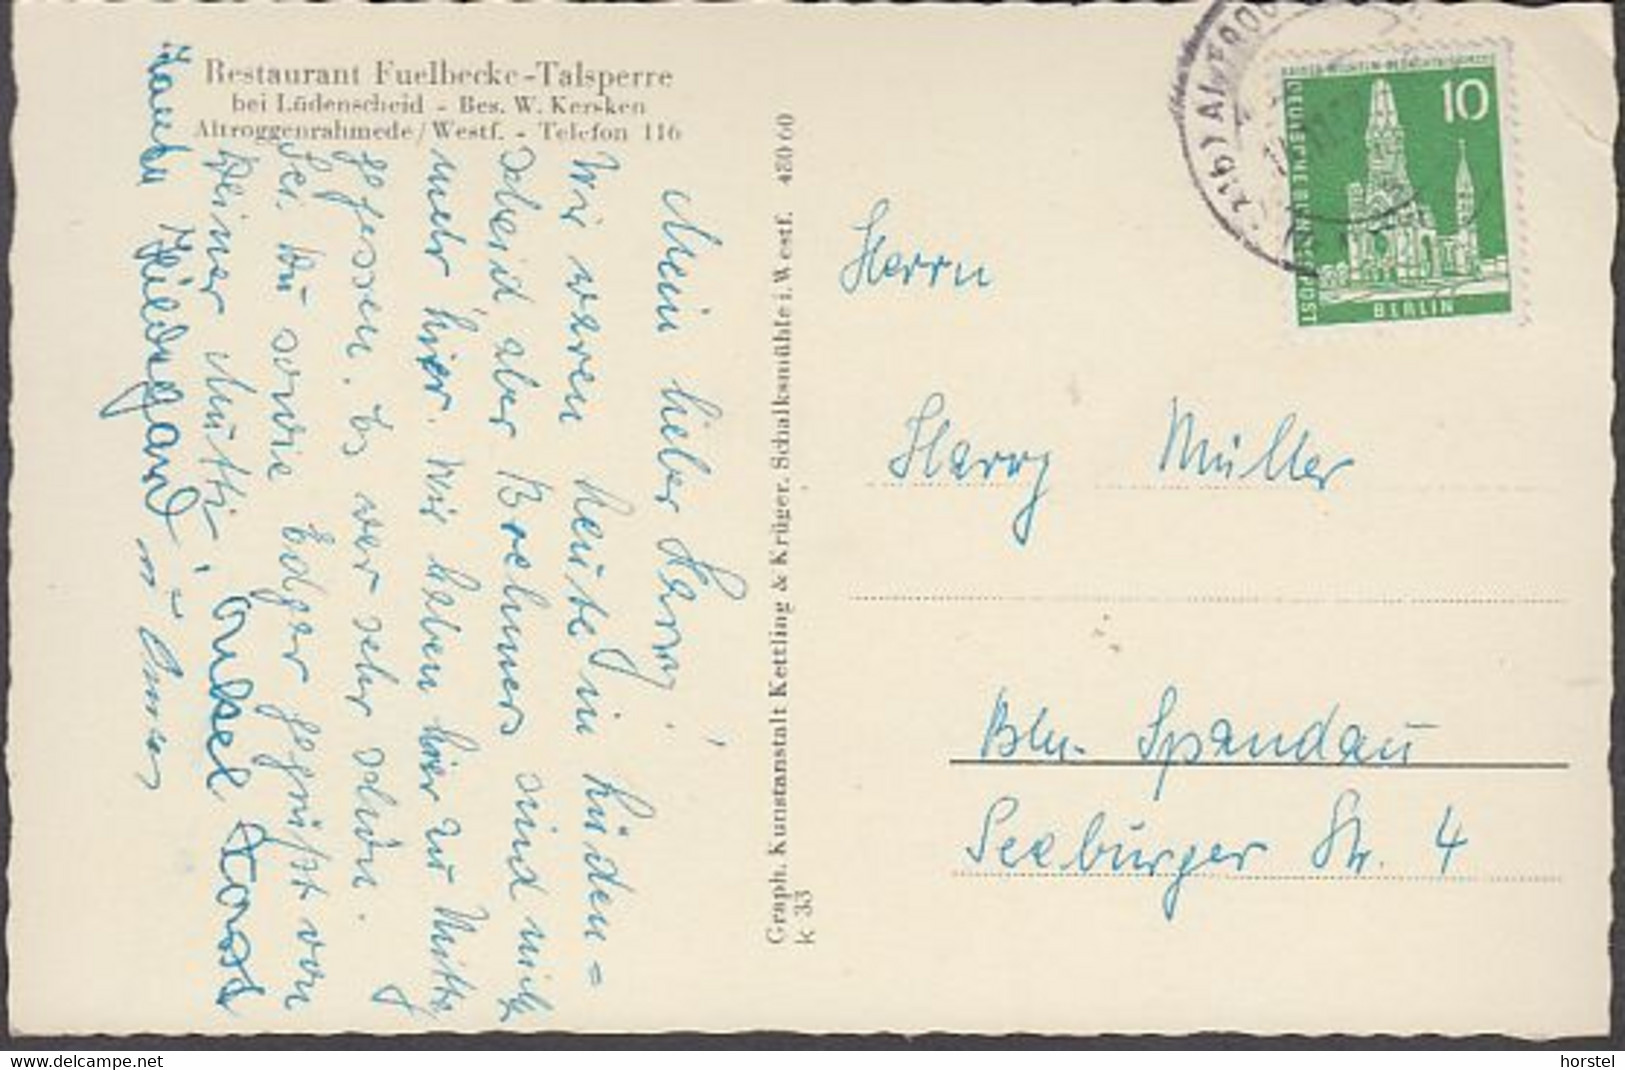 Restaurant Fuelbecke-Talsperre
bei Lüdenscheid - Bes. W. Kersken
Altroggenrahmede/Westf. - Telefon 116
Mein lieber Harry,
Wir waren heute in Lüden=
scheid, aber Brehmers sind nicht
mehr hier. Wir haben hier zu Mittag
gegessen. Es war sehr schön.
Sei Du sowie Edgar gegrüßt von
Deiner Mutti, Onkel Horst
Tante Hildegard u.
Graph. Kunstanstalt Kettling & Krüger, Schalksmühle i. Westf. 480 60
k 33
(21b) ALTROGG
KAISER-WILHELM-GEDÄCHTNISKIRCHE
10
DEUTSCHE BUNDESPOST
BERLIN
Herrn
Harry Müller
Bln. Spandau
Seeburger Str. 4
horstel
www.delcampe.net